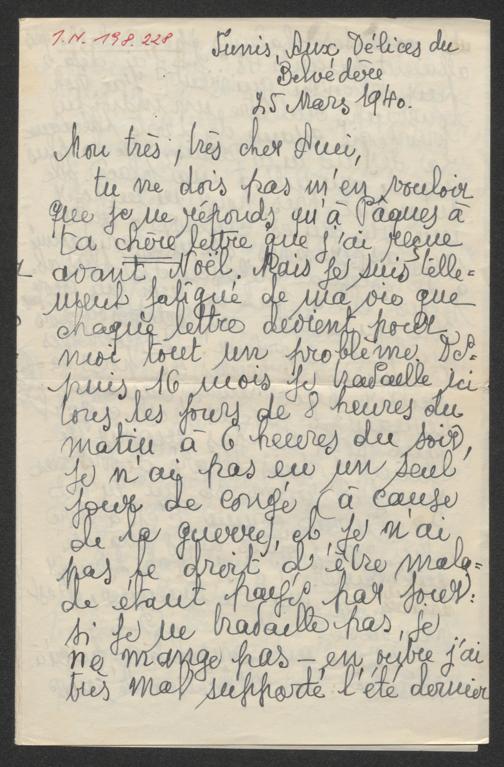 I.N. 198.228
Tunis, Aux Délices du
Belvédère
25 Mars 1940.
Mon très, très cher Ami,
tu ne dois pas m'en vouloir
que je ne réponds qu'à Pâques à
ta chère lettre que j'ai reçue
avant Noël. Mais je suis telle=
ment fatigué de ma vie que
chaque lettre devient pour
moi tout un problème. De=
puis 16 mois je travaille ici
tous les jours de 8 heures du
matin à 6 heures du soir,
je n'ai pas eu un seul
jour de congé (à cause
de la guerre), et je n'ai
pas le droit d'être mala=
de étant payé par jour:
si je ne travaille pas, je
ne mange pas – en outre j'ai
très mal supporté l'été dernier